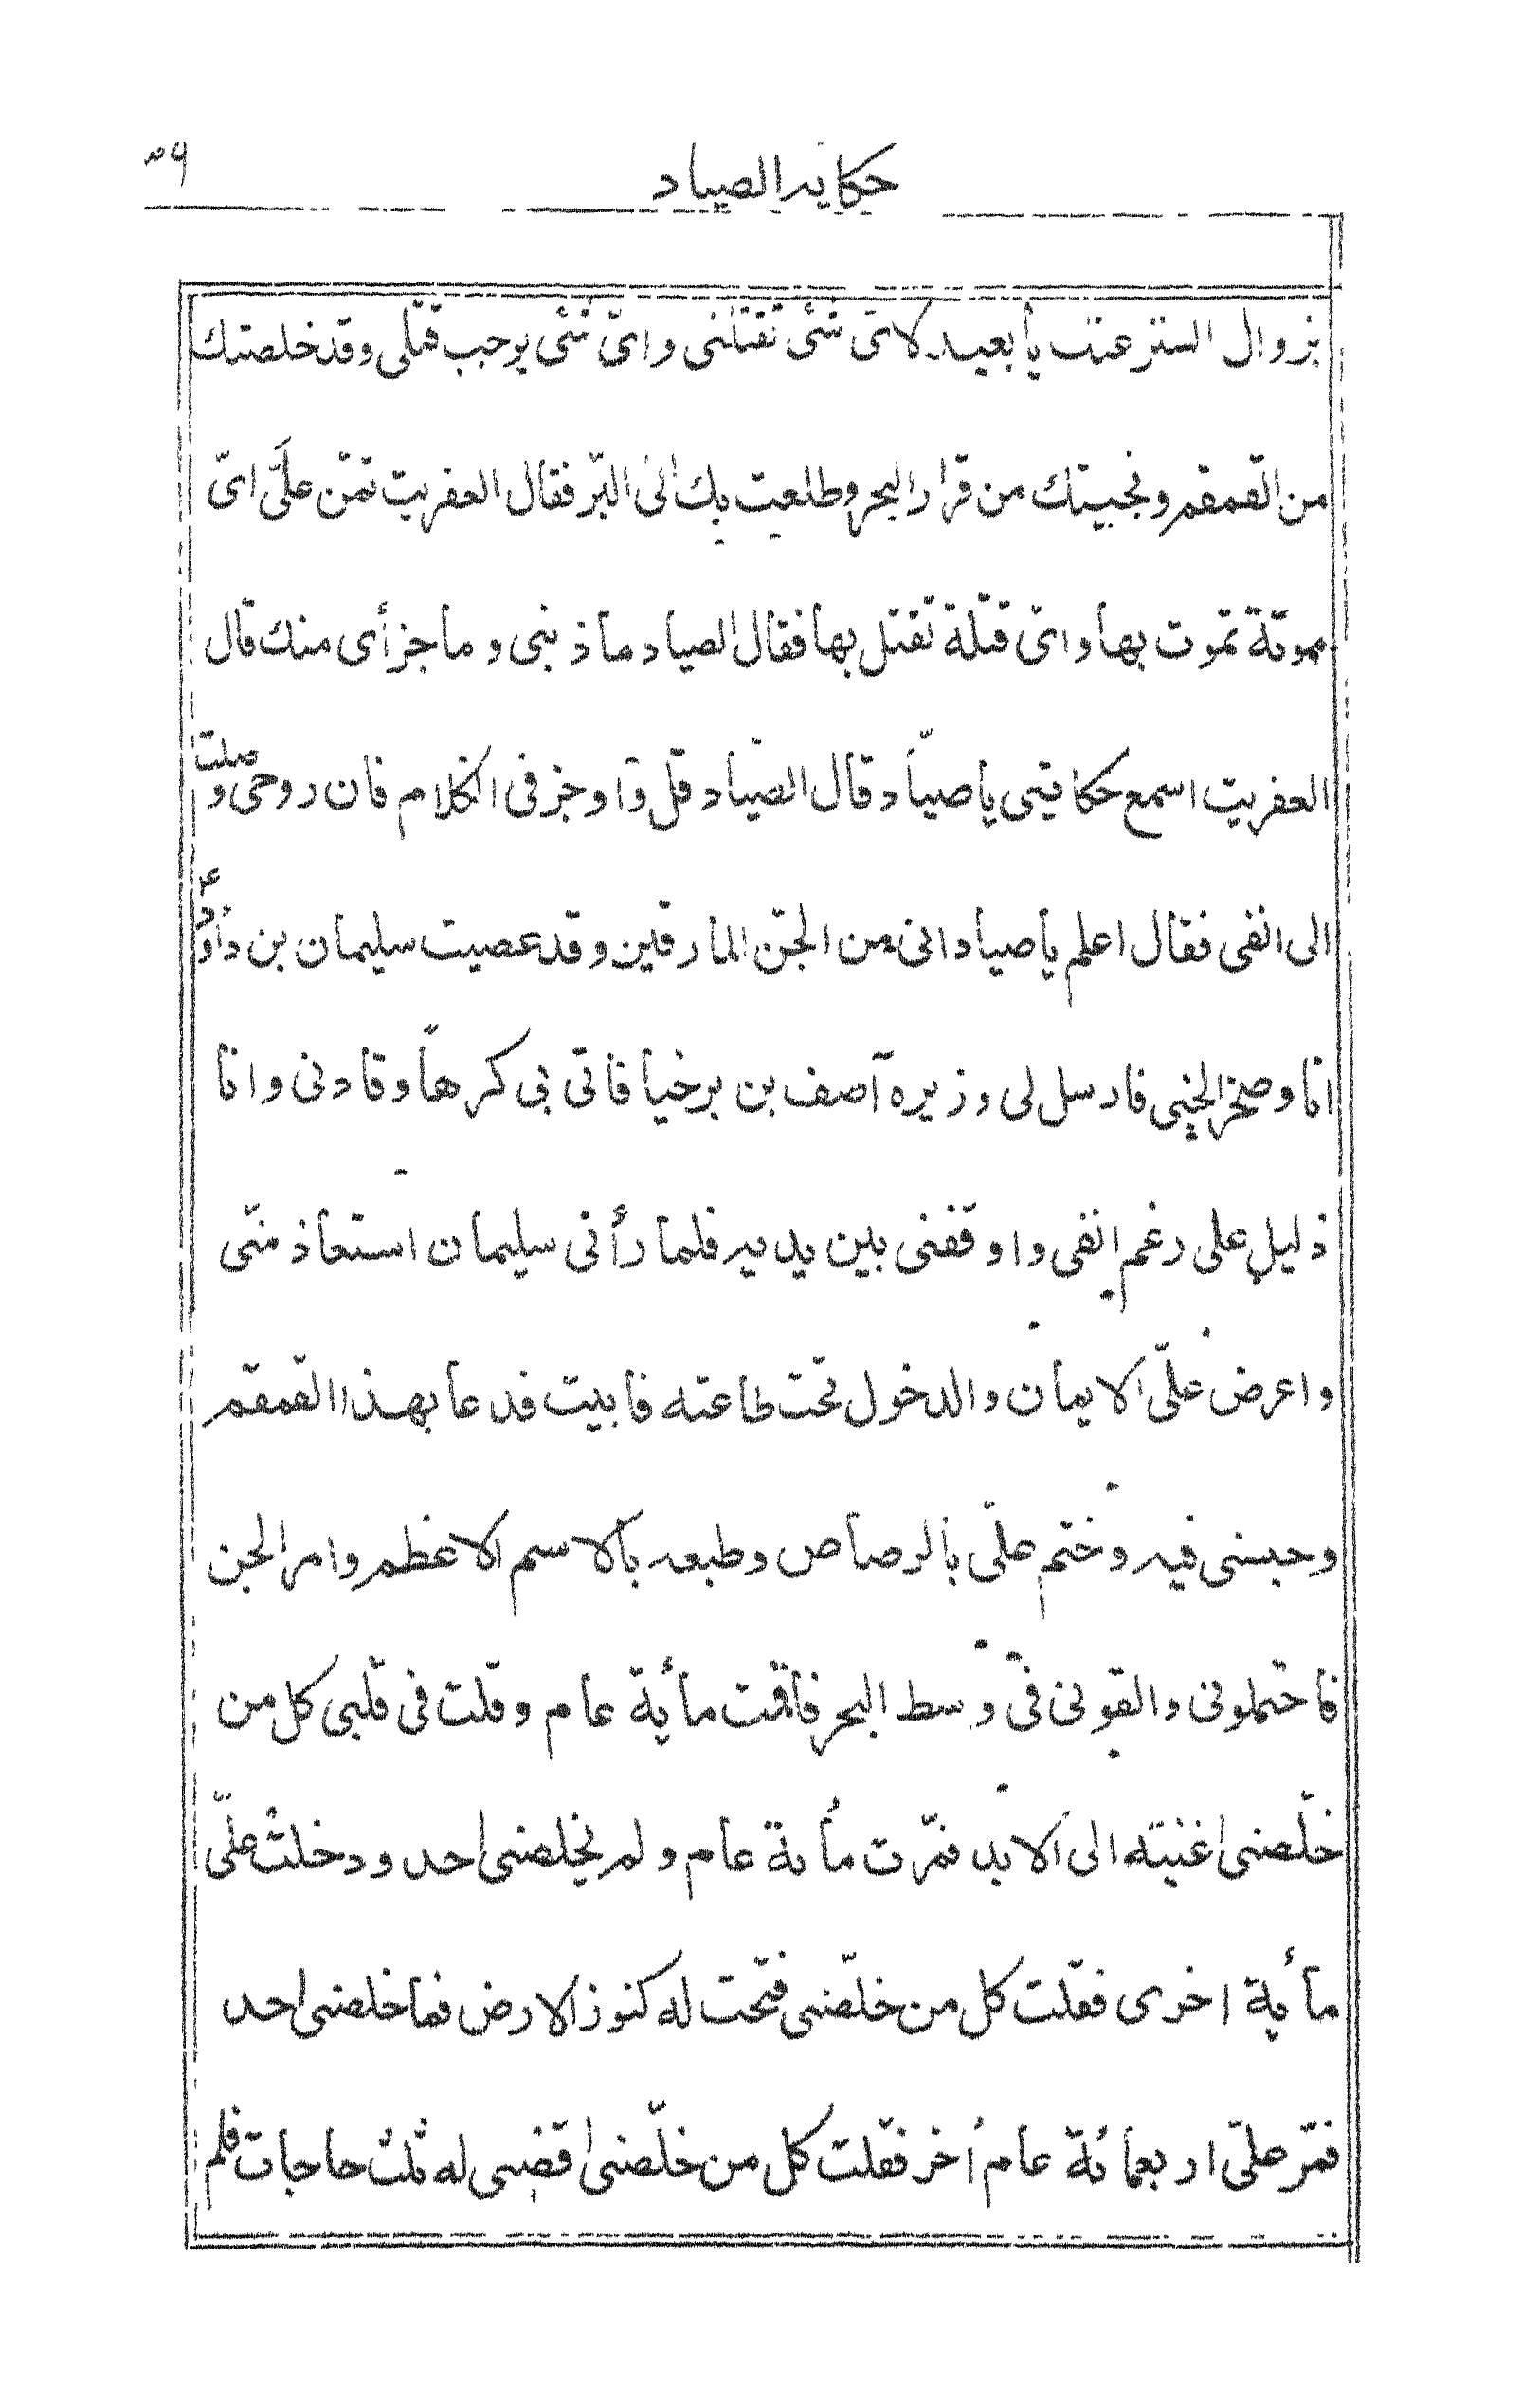 حكاية الصياد
٥٩
بزوال الستر عنك يا بعيد لاىّ شئ تقتلنى واىّ شئ يوجب قتلى وقد خلصتك
من القمقم ونجيتك من قرار البحر وطلعت بك الى البرّ فقال العفريت تمنّ علىَّ اىّ
موتة تموت بها واىّ قتلة تقتل بها فقال الصياد ما ذنبى وما جزأى منك قال
العفريت اسمع حكايتى يا صيّاد قال الصيّاد قل و اوجز فى الكلام فان روحى وصلت
الى انفى فقال اعلم يا صياد انى من الجنّ المارقين وقد عصيت سليمان بن داود ع
انا وصخر الجنى فارسل لى وزيره آصف بن برخيا فاتى بى كرهاً وقادنى وانا
ذليل على رغم انفى واوقفنى بين يديه فلما رأنى سليمان استعاذ منّى
واعرض علىّ الايمان والدخول تحت طاعته فابيت فدعا بهذا القمقم
وحبسنى فيه وختم علىّ بالرصاص وطبعه بالاسم الاعظم وامر الجن
فاحتملونى والقونى فى وسط البحر فاقمت مأية عام وقلت فى قلبى كل من
خلّصنى اغنيته الى الابد فمرّت مأية عام ولم يخلصنى احد ودخلت علىّ
مأية اخرى فقلت كل من خلّصنى فتحت له كنوز الارض فما خلصنى احد
فمرّ علىّ اربعمائة عام أخر فقلت كل من خلّصنى اقضى له ثلث حاجات فلم